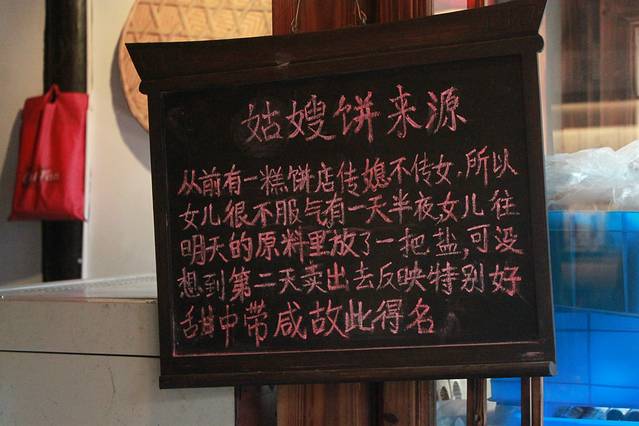 姑嫂饼来源
从前有一糕饼店传媳不传女,所以
女儿很不服气有一天半夜,女儿往
明天的原料里放了一把盐,可没
想到第二天卖出去反映特别好
甜中带咸故此得名